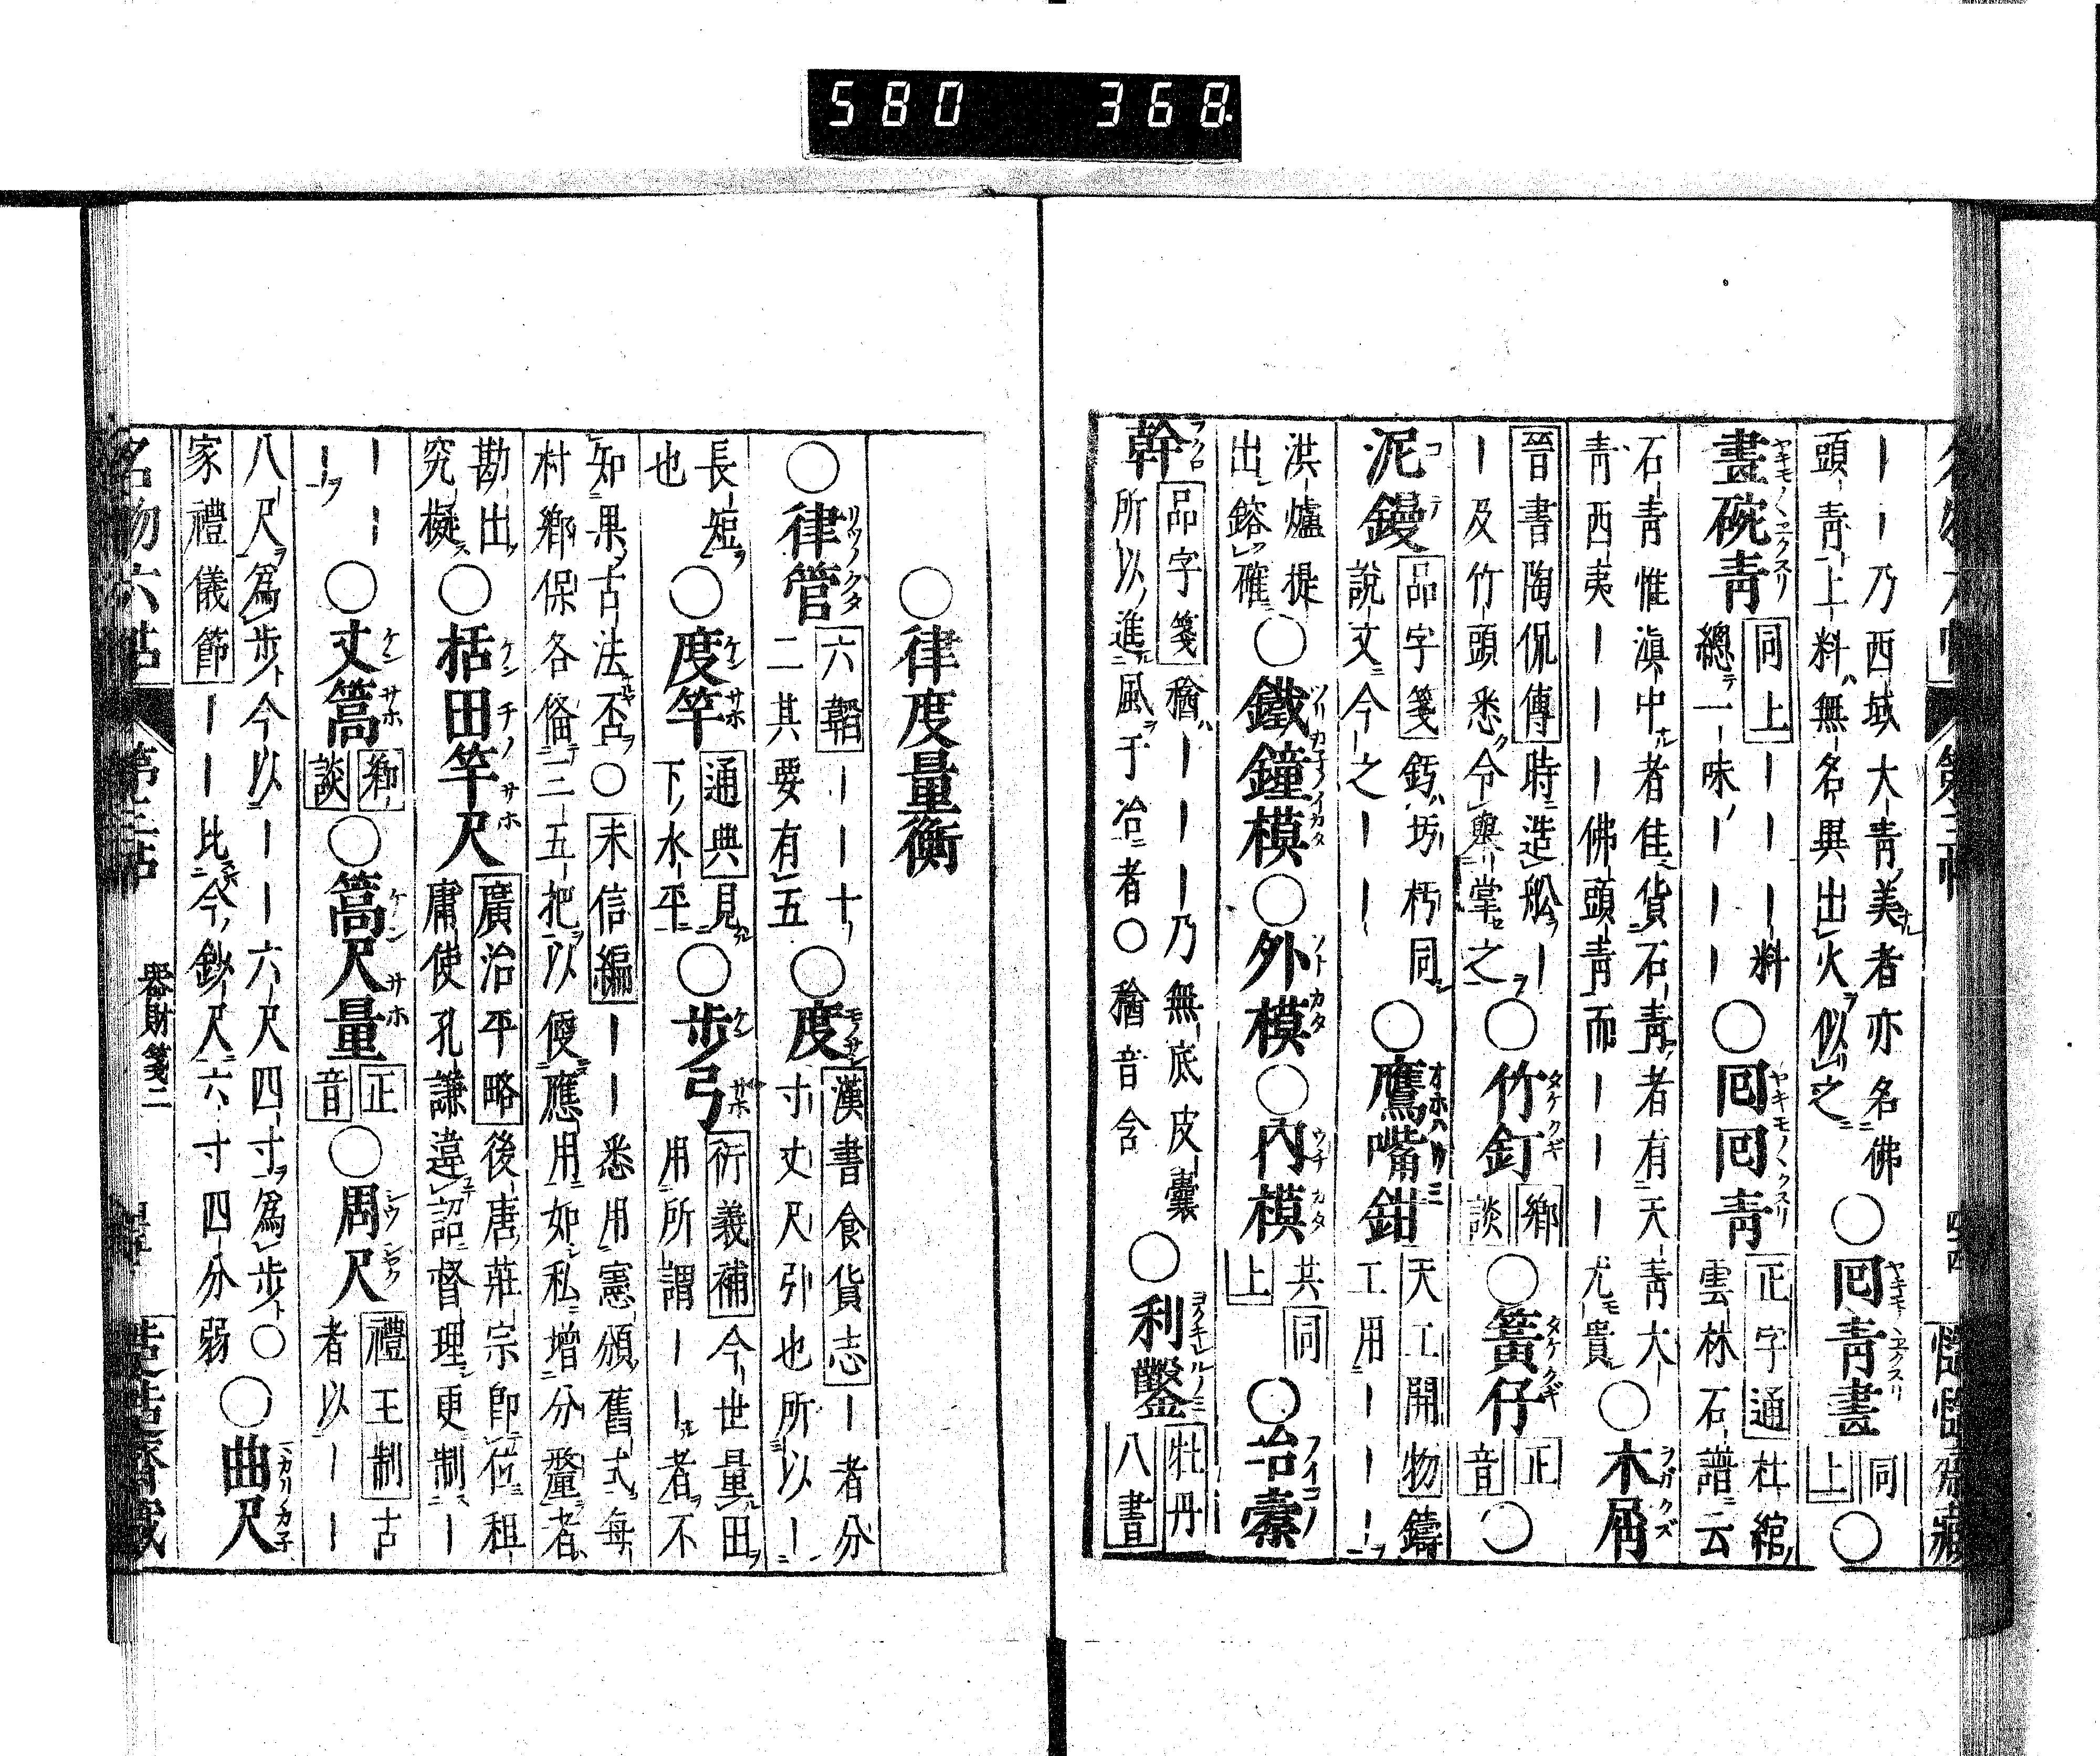 580 368
｜｜乃西域大青美者亦名佛
頭青上料無名異出火似之
○回青畫
同上
○
畫碗青
同上｜｜｜料
總一味｜｜｜
○回回青
正字通杜綰
雲林石譜云
石青惟滇中者佳貨石青者有天青大
青西夷｜｜｜佛頭青而｜｜｜尤貴
○木屑
晉書陶侃傳時造船｜
｜及竹頭悉令舉掌之
○竹釘
鄉談
○簧仔
正音
○
泥鏝
品字箋鈣圬杇同
說文今之｜｜
○鷹嘴鉗
天工開物鑄
工用｜｜｜
洪爐提
出鎔確
○鐵鐘模○外模○內模
共同上
○冶橐
幹
品字箋䪜｜｜｜乃無底皮囊
所以進風于冶者○䪜音含
○利鑿
牡丹
八書
○律度量衡
○律管
六韜｜｜十
二其要有五
○度
漢書食貨志｜者分
寸丈尺引也所以｜
長短
也
○度竿
通典見
下水平
○步弓
衍義補今世量田
用所謂｜｜者不
知果古法否○未信編｜｜悉用憲頒舊式每
村鄉保各備三五把以便應用如私增分釐者
勘出
究擬
○括田竿尺
廣治平略後唐莊宗卽位租
庸使孔謙違詔督理更制｜
｜｜
｜
○丈篙
鄉談
○篙尺量
正音
○周尺
禮王制古
者以｜｜
八尺爲步今以｜｜六尺四寸爲步○
家禮儀節｜｜比今鈔尺六寸四分弱
○曲尺
名物六帖
第三帖
器財箋二